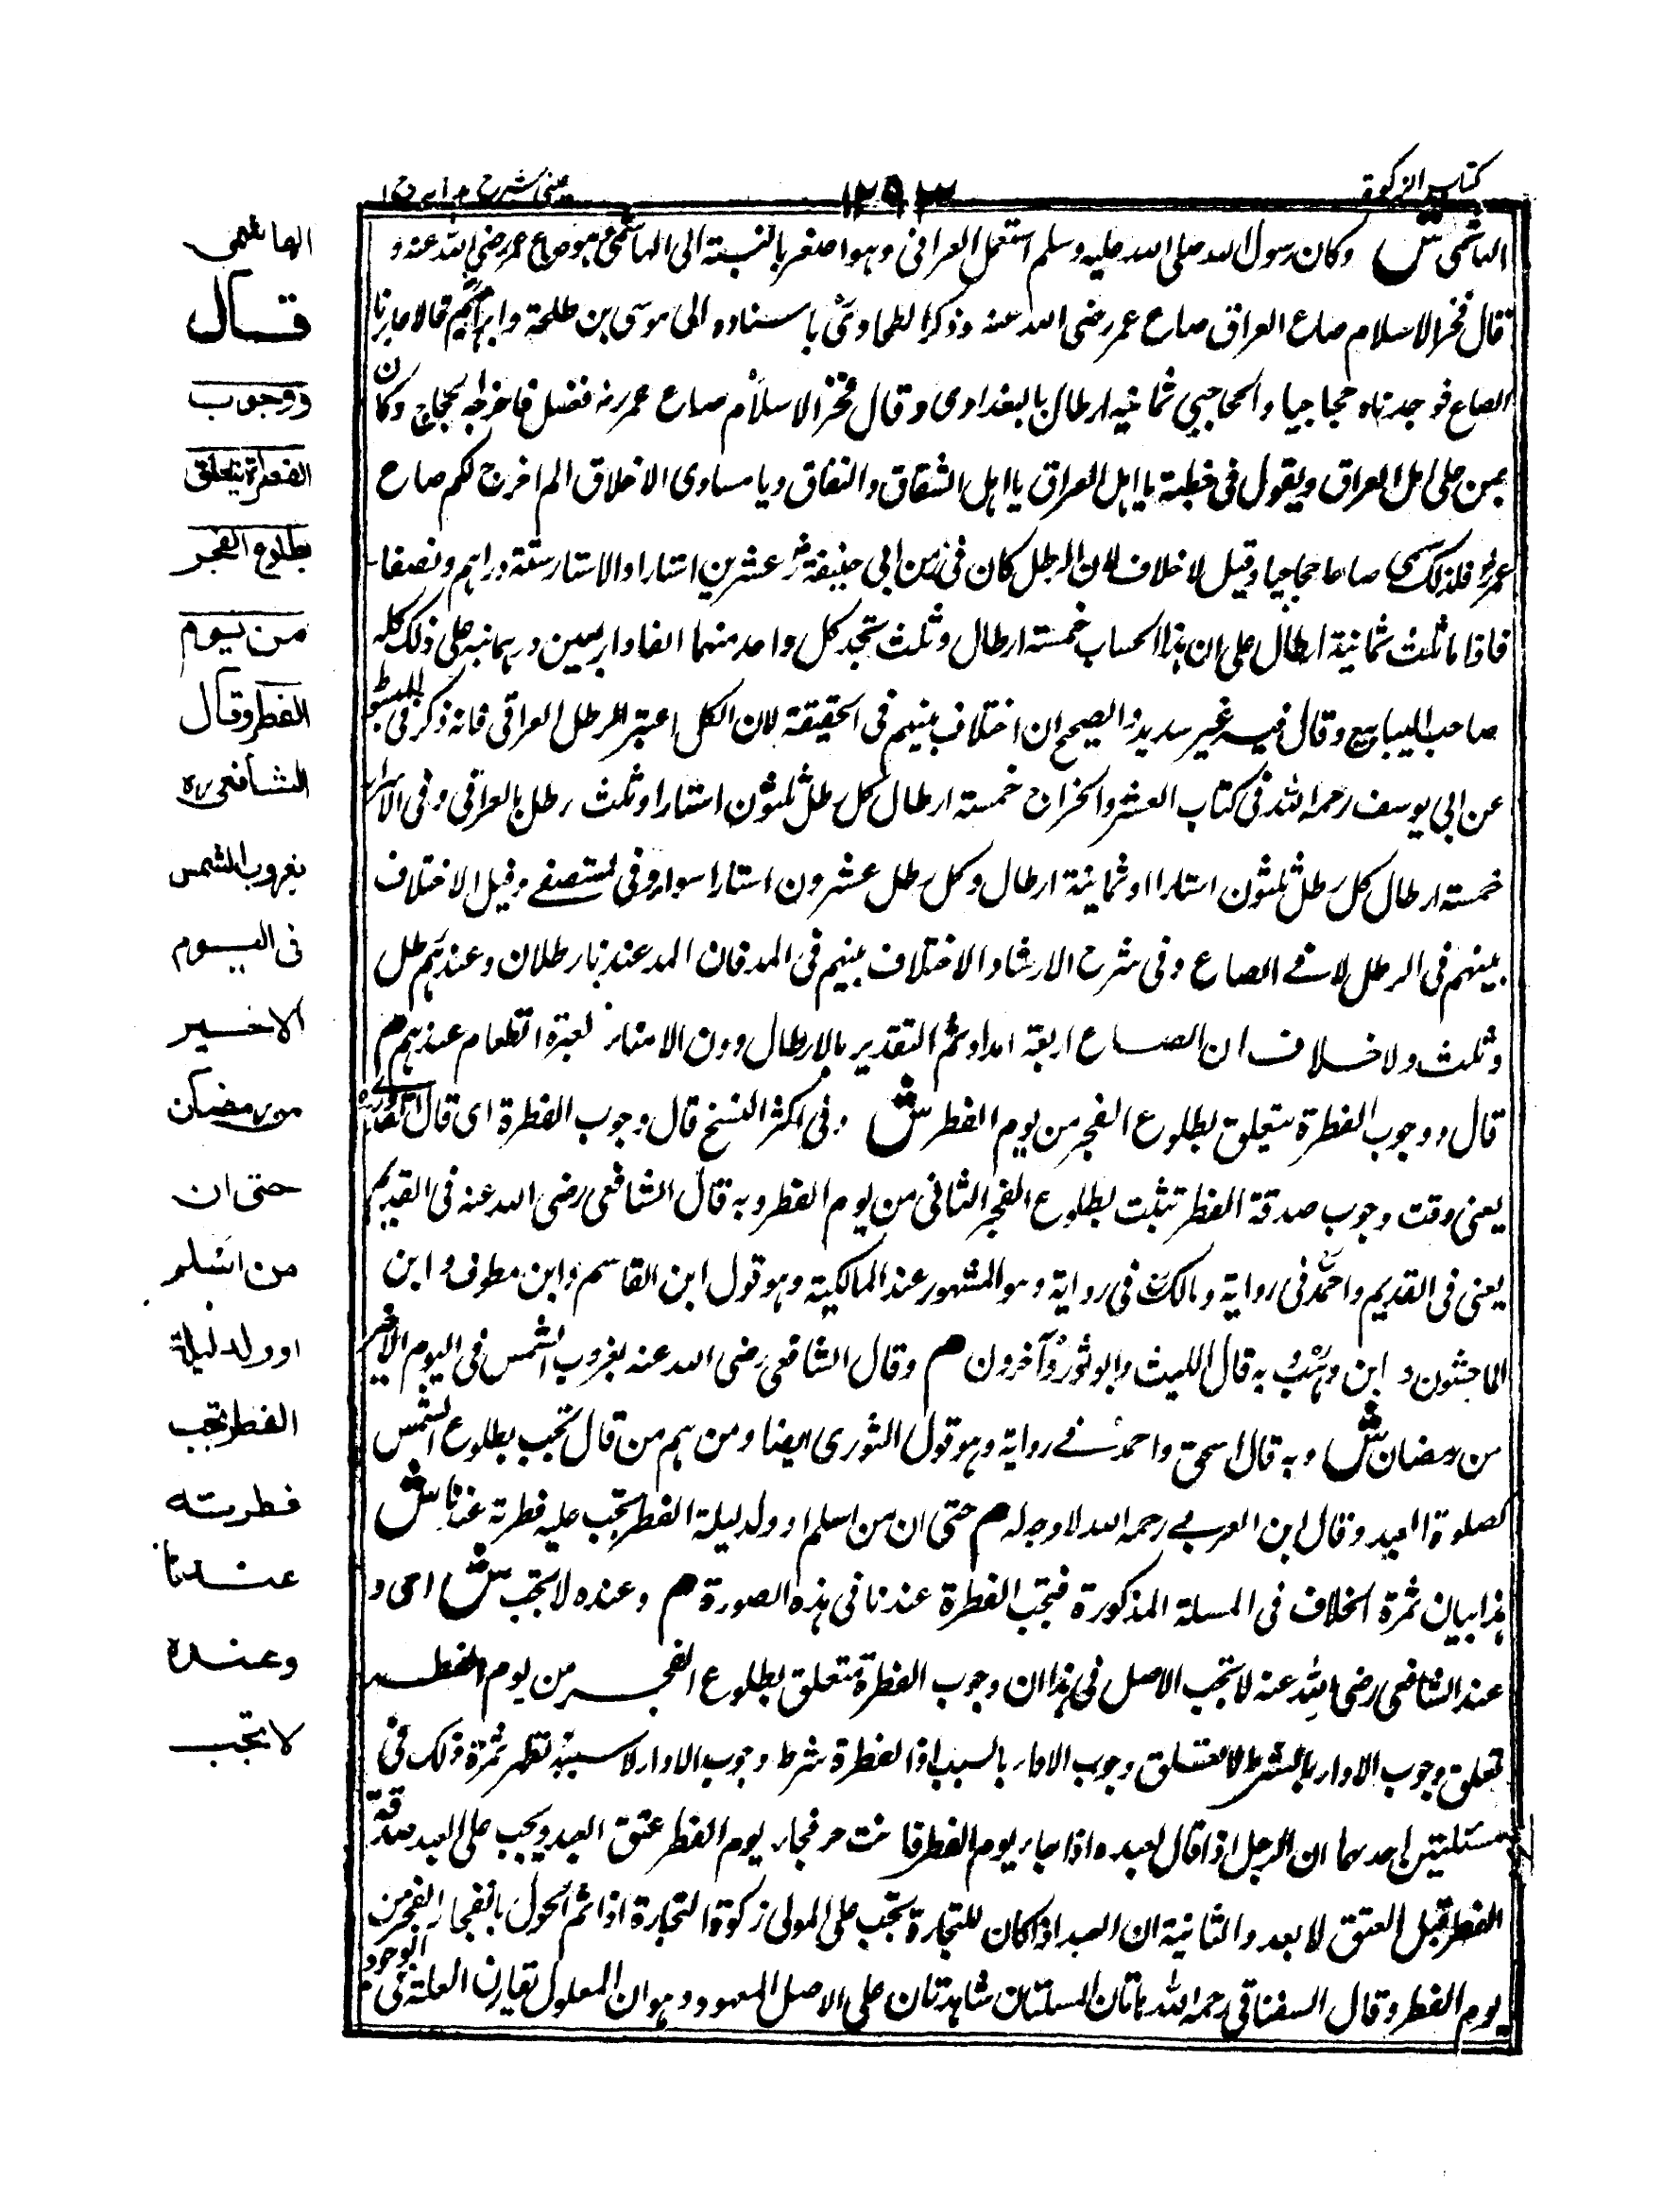 كتاب الزكوة
١٢٩٣
عينى شرح هدايه ج ١
الهاشمى ش وكان رسول الله صلى الله عليه وسلم استعمل العراقى وهو اصغر بالنسبة الى الهاشمى هو صاع عمر رضى الله عنه و
قال فخر الاسلام صاع العراق صاع عمر رضى الله عنه وذكر الطحاوى باسناده الى موسى بن طلحة وابراهيم قالا عايرنا
الصاع فوجدناه حجاجيا والحجاجى ثمانية ارطال بالبغدادى وقال فخر الاسلام صاع عمر رض فضل فاخرجه الحجاج وكان
يمن على اهل العراق ويقول فى خطبة يا اهل العراق يا اهل الشقاق والنفاق ويا مساوى الاخلاق الم اخرج لكم صاع
عمر رض فلذلك سمى صاعا حجاجيا وقيل لا خلاف لان الرطل كان فى زمن ابى حنيفة رح عشرين استارا والاستار ستة دراهم ونصفا
فاذا ثمانية ارطال على ان هذا الحساب خمسة ارطال وثلث تجد كل واحد منهما الفا واربعين درهما نبه على ذلك كله
صاحب الينابيع وقال فيه غير سديد والصحيح ان اختلاف بينهم فى الحقيقة لان الكل اعتبر الرطل العراقى فانه ذكر فى المبسوط
عن ابى يوسف رحمه الله فى كتاب العشر والخراج خمسة ارطال كل رطل ثلثون استارا وثلث رطل بالعراقى وفى الاسرار
خمسة ارطال كل رطل ثلثون استارا او ثمانية ارطال وكل رطل عشرون استارا سواء وفى المستصفے وقيل الاختلاف
بينهم فى الرطل لا فے الصاع وفى شرح الارشاد الاختلاف بينهم فى المد فان المد عندنا رطلان وعندهم رطل
وثلث ولا خلاف ان الصاع اربعة امداد ثم التقدير بالارطال دون الامناء لعبرة الطعام عندهم م
قال ووجوب الفطرة يتعلق بطلوع الفجر من يوم الفطر ش وفى اكثر النسخ قال وجوب الفطرة اى قال القدورى
يعنى وقت وجوب صدقة الفطر تثبت بطلوع الفجر الثانى من يوم الفطر وبه قال الشافعى رضى الله عنه فى القديم
يعنى فى القديم واحمد فى رواية ومالك فى رواية وهو المشهور عند المالكية وهو قول ابن القاسم وابن مطرف وابن
الماجشون و ابن وهب وبه قال الليث وابو ثور وآخرون م وقال الشافعى رضى الله عنه بغروب الشمس فى اليوم الاخير
من رمضان ش وبه قال اسحق واحمد فے رواية وهو قول الثورى ايضا ومنهم من قال تجب بطلوع الشمس
لصلوة العيد وقال ابن العربے رحمه الله لا وجه له م حتى ان من اسلم او ولد ليلة الفطر تجب عليه فطرته عندنا ش
هذا بيان ثمرة الخلاف فى المسلة المذكورة فتجب الفطرة عندنا فى هذه الصورة م وعنده لا تجب ش اى و
عند الشافعى رضى الله عنه لا تجب الاصل فى هذا ان وجوب الفطرة متعلق بطلوع الفجر من يوم الفطر
تعلق وجوب الاداء بالشرط لا تعلق وجوب الاداء بالسبب اذ الفطرة شرط وجوب الاداء لا سببه تظهر ثمرة ذلك فى
مسئلتين احدهما ان الرجل اذا قال لعبده اذا جاء يوم الفطر فانت حر فجاء يوم الفطر عتق العبد ويجب على العبد صدقة
الفطر قبل العتق لا بعد والثانية ان العبد اذا كان للتجارة تجب على المولى زكوة التجارة اذا ثم الحول بانفجار الفجر من
يوم الفطر وقال السغناقى رحمه الله هاتان المسلتان شاهدتان على الاصل المعهود وهو ان المعلول يقارن العلة فى الوجود م
الهاشمى
قال
ووجوب
الفطرة يتعلق
بطلوع الفجر
من يوم
الفطر وقال
الشافعى ره
بغروب الشمس
فى اليوم
الاخير
من رمضان
حتى ان
من اسلم
او ولد ليلة
الفطر تجب
فطرته
عندنا
وعنده
لا تجب